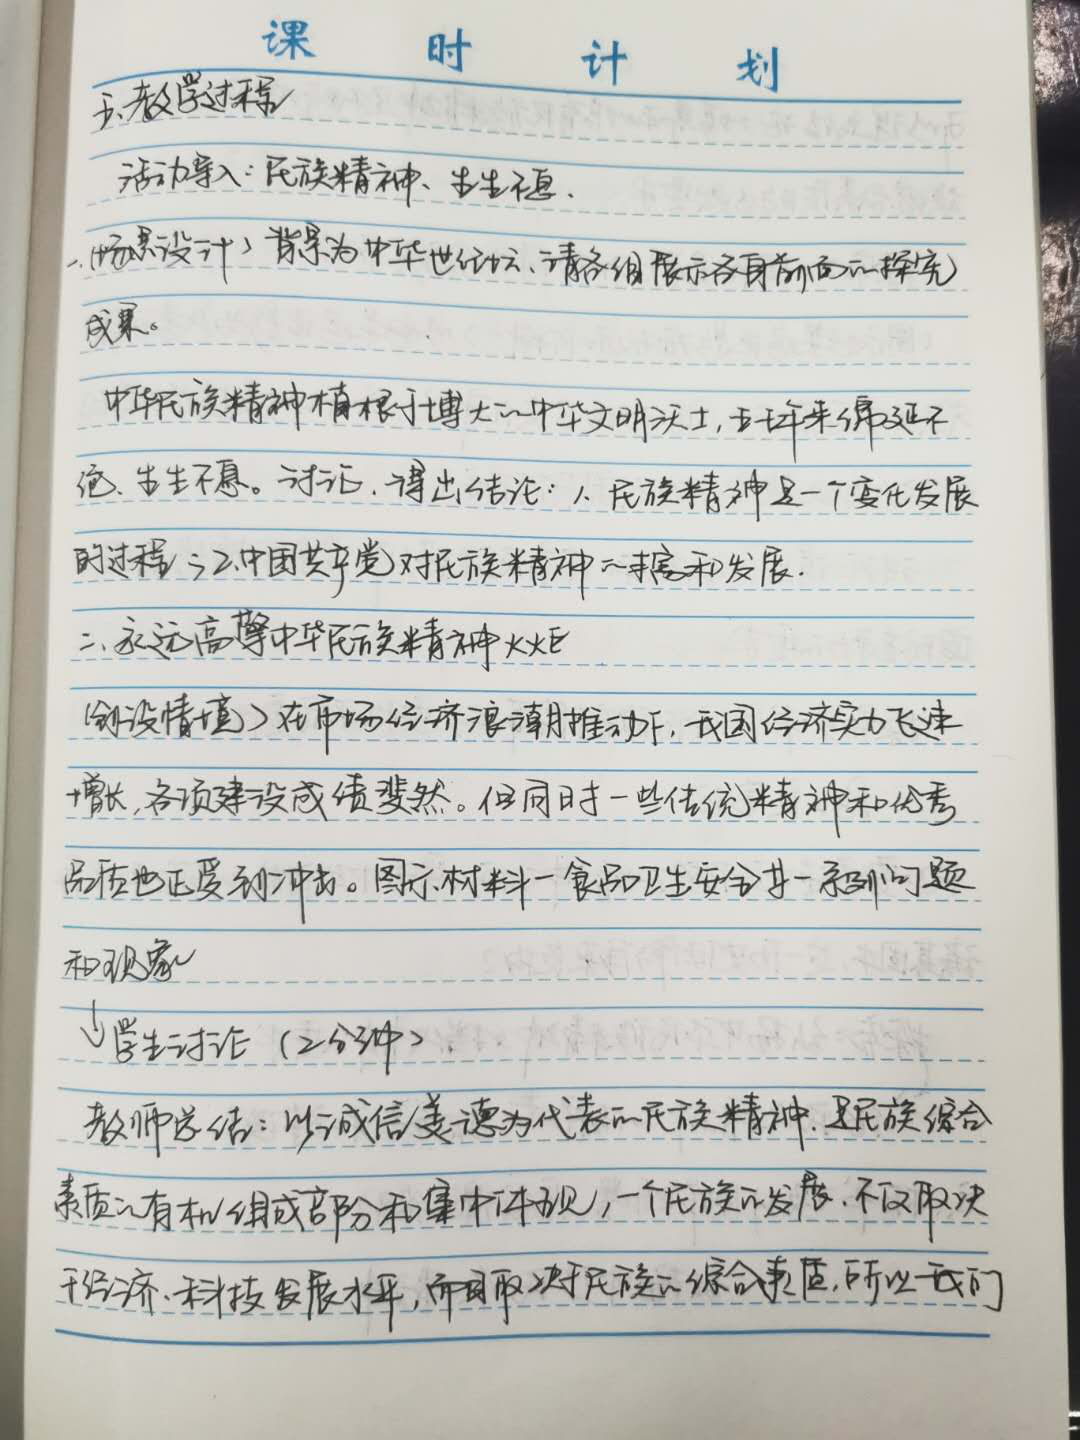 课时计划
五、教学过程
活动导入：民族精神、生生不息.
一、(场景设计) 背景为中华世纪坛、请各组展示各自前面的探究
成果。
中华民族精神植根于博大的中华文明沃土,五千年来绵延不
绝、生生不息。讨论,得出结论：1、民族精神是一个变化发展
的过程；2、中国共产党对民族精神的 和发展.
二、永远高擎中华民族精神火炬
(创设情境) 在市场经济浪潮推动下,我国经济实力飞速
增长,各项建设成绩斐然。但同时一些传统精神和优秀
品质也正受到冲击。图示材料一食品卫生安全等一系列问题
和现象
↓学生讨论 (2分钟).
教师总结：以诚信美德为代表的民族精神.是民族综合
素质的有机组成部分和集中体现,一个民族的发展.不仅取决
于经济.科技发展水平,而且取决于民族的综合素质,所以我们